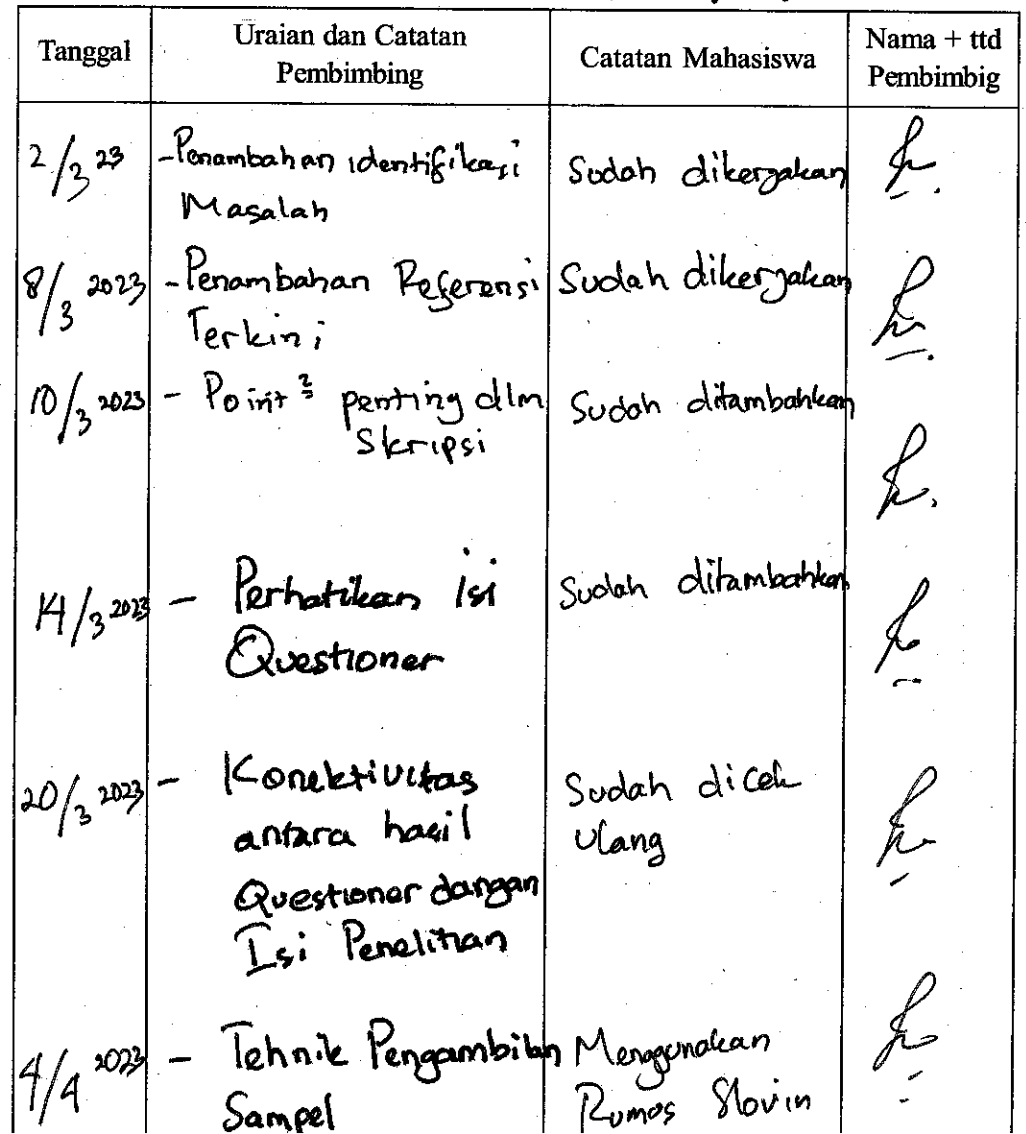 Tanggal
Uraian dan Catatan
Pembimbing
Catatan Mahasiswa
Nama + ttd
Pembimbig
2/3 23
-Penambahan identifikasi
Masalah
Sudah dikerjakan
8/3 2023
-Penambahan Referensi
Terkini
Sudah dikerjakan
10/3 2023
- Point² penting dlm
Skripsi
Sudah ditambahkan
14/3 2023
- Perhatikan Isi
Questioner
Sudah ditambahkan
20/3 2023
- Konektivitas
antara hasil
Questioner dengan
Isi Penelitian
Sudah dicek
ulang
4/4 2023
- Tehnik Pengambilan
Sampel
Menggunakan
Rumos Slovin